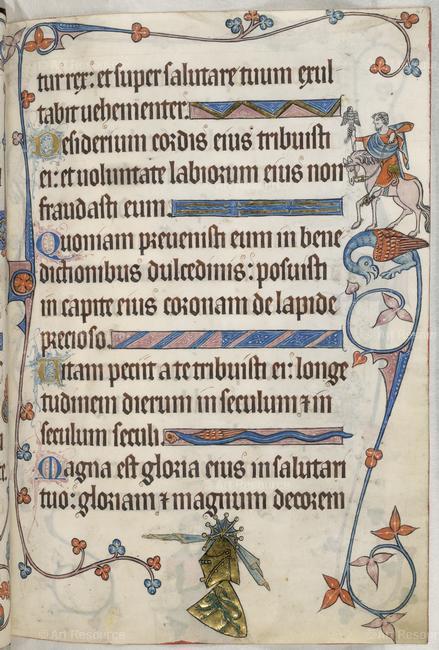 tur rex: et super salutare tuum exul
tabit vehementer.
Desiderium cordis eius tribuisti
ei: et voluntate labiorum eius non
fraudasti eum.
Quoniam prevenisti eum in bene
dictionibus dulcedinis: posuisti
in capite eius coronam de lapide
precioso.
Vitam peciit a te tribuisti ei: longi
tudinem dierum in seculum ⁊ in
seculum seculi.
Magna est gloria eius in salutari
tuo: gloriam ⁊ magnum decorem
© Art Resource
© Art Resource
© Art Resource